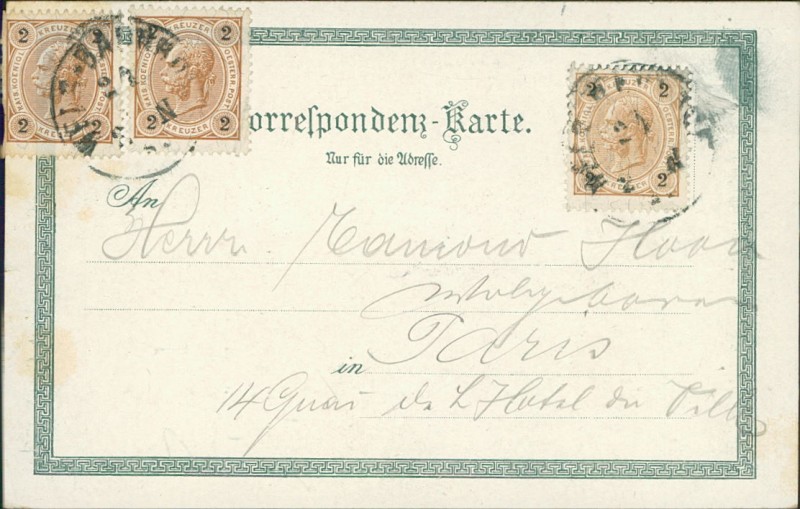 2 KREUZER 2
KAIS. KOENIGL. OESTERR. POST
2 KREUZER 2
2 KREUZER 2
KAIS. KOENIGL. OESTERR. POST
2 KREUZER 2
2 2
2 KREUZER 2
orrespondenz-Karte.
Nur für die Adresse.
An
Herrn Raymond
Wolgeboren
in Paris
14 Quai de L Hotel du Ville